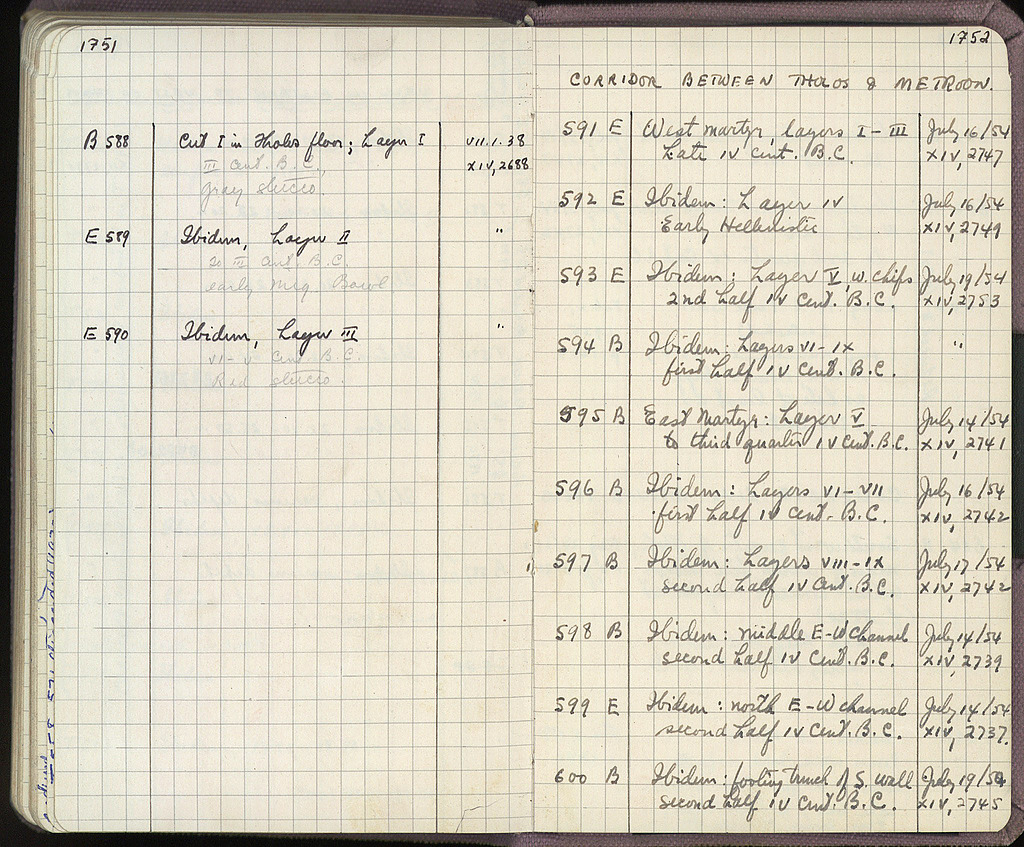 1751
B 588 Cut I in Tholos floor; Layer I VII.1.38
III Cent. B.C. XIV, 2688
Gray stucco.
E 589 Ibidem, Layer II "
to III Cent. B.C.
early Meg. Bowl
E 590 Ibidem, Layer III "
VI-V Cent. B.C.
Red stucco.
1752
CORRIDOR BETWEEN THOLOS & METROON.
591 E West martyr, layers I-III July 16/54
Late IV cent. B.C. XIV, 2747
592 E Ibidem: Layer IV July 16/54
Early Hellenistic XIV, 2749
593 E Ibidem: Layer V, w. chips July 19/54
2nd half IV Cent. B.C. XIV, 2753
594 B Ibidem: Layers VI-IX "
first half IV Cent. B.C.
595 B East Martyr: Layer V July 14/54
to third quarter IV Cent. B.C. XIV, 2741
596 B Ibidem: Layers VI-VII July 16/54
first half IV Cent. B.C. XIV, 2742
597 B Ibidem: Layers VIII-IX July 17/54
second half IV Cent. B.C. XIV, 2742
598 B Ibidem: middle E-W channel July 14/54
second half IV Cent. B.C. XIV, 2739
599 E Ibidem: north E-W channel July 14/54
second half IV Cent. B.C. XIV, 2737.
600 B Ibidem: footing trench of S. wall July 19/54
second half IV Cent. B.C. XIV, 2745